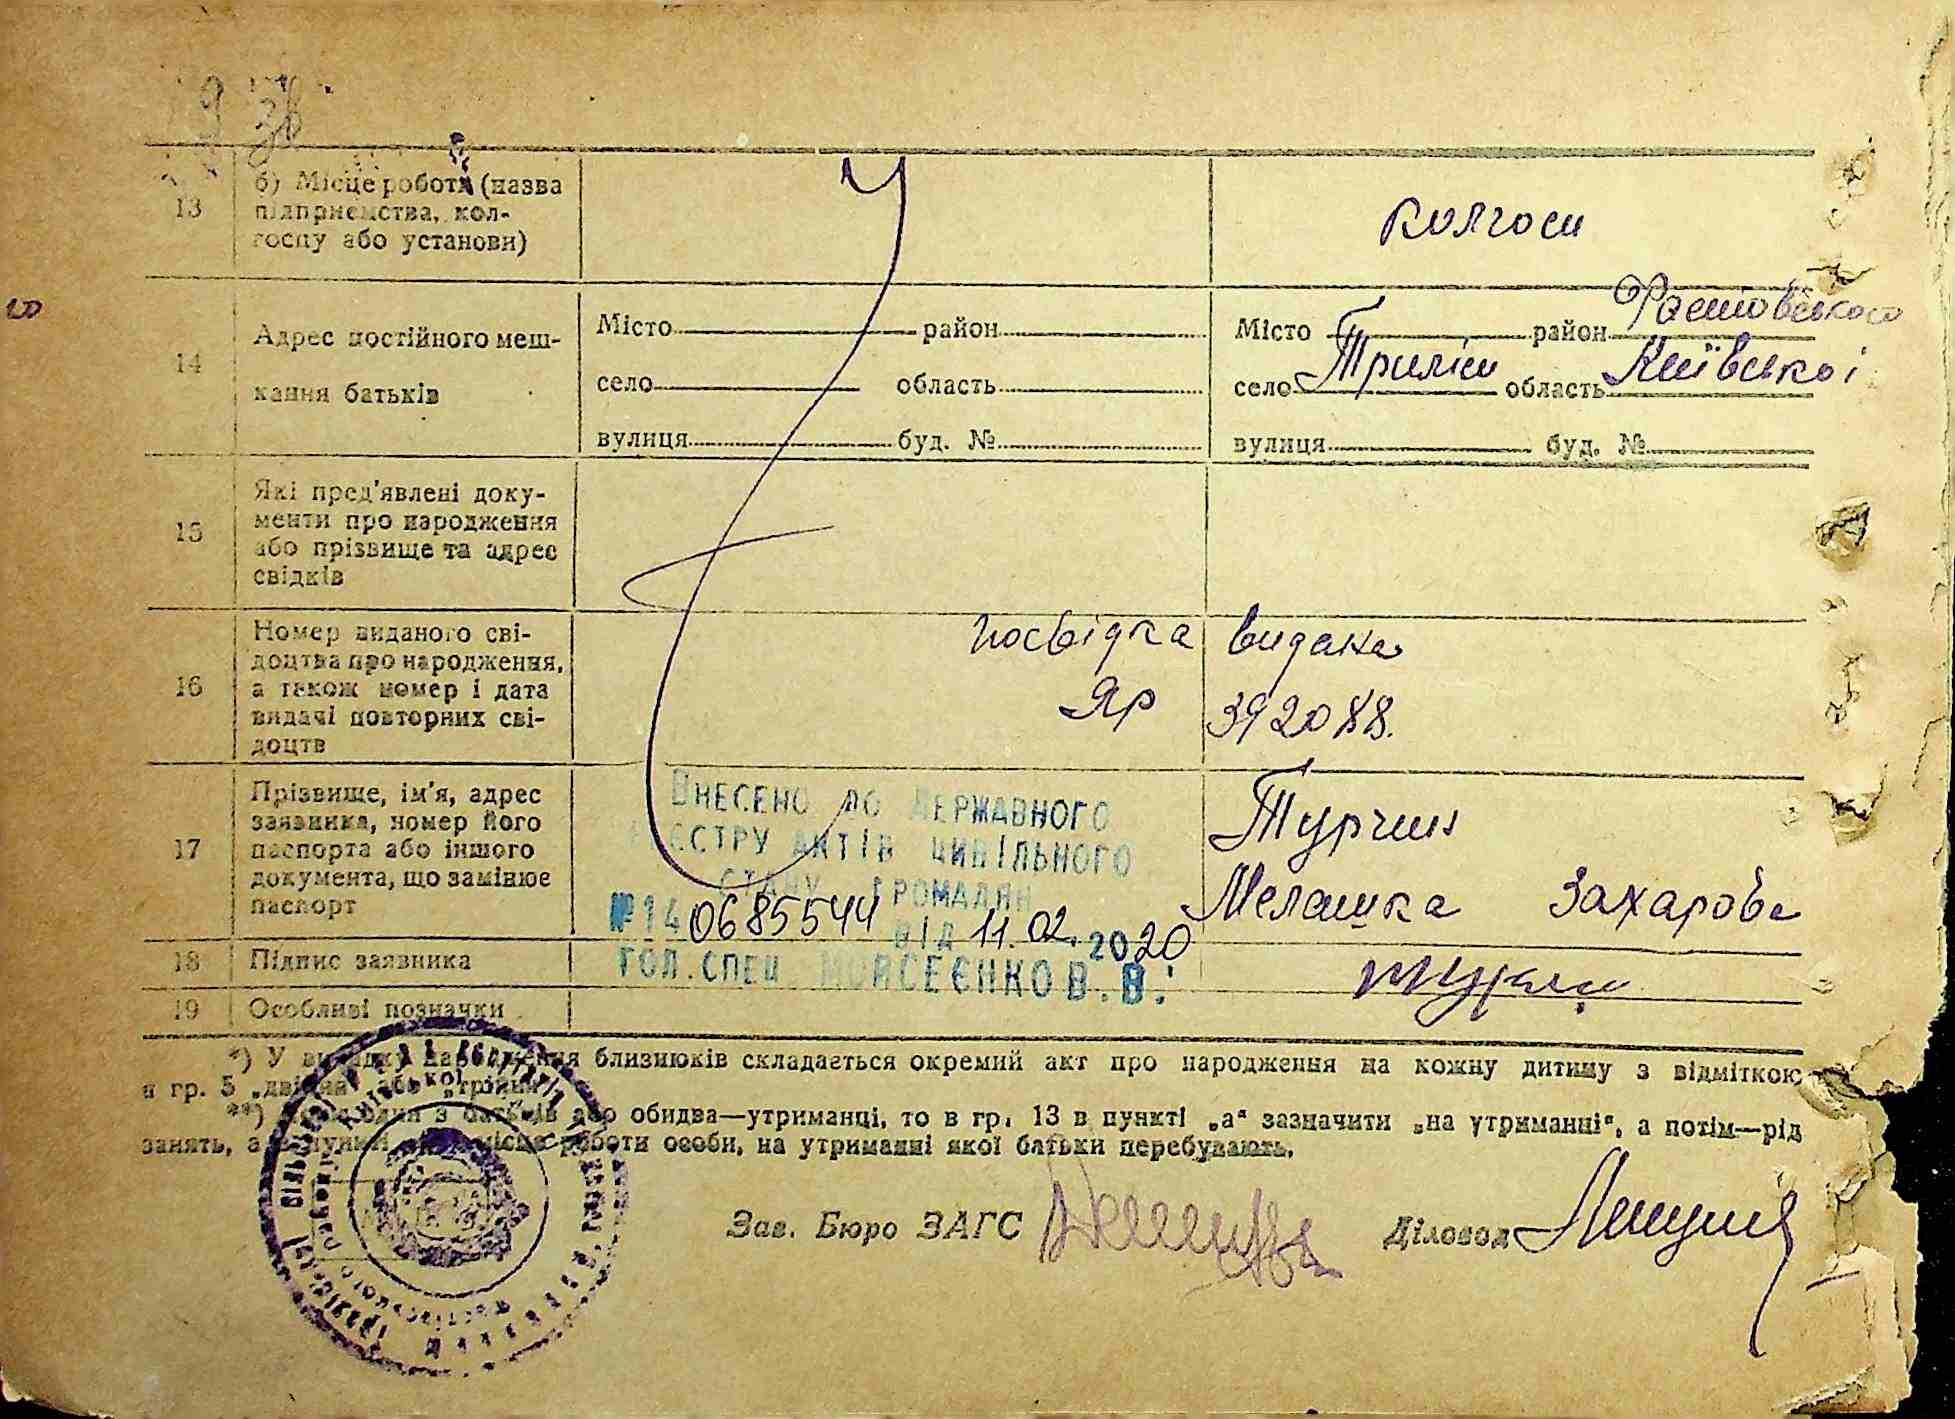 13
б) Місце роботи (назва
підприємства, кол-
госпу або установи)
колгосп
14
Адрес постійного меш-
кання батьків
Місто район
село область
вулиця буд. №
Місто район Фастовського
село Триліси область Київської
вулиця буд. №
15
Які пред'явлені доку-
менти про народження
або прізвище та адрес
свідків
16
Номер виданого сві-
доцтва про народження,
а також номер і дата
видачі повторних сві-
доцтв
посвідка видана
ЯР 392088.
17
Прізвище, ім'я, адрес
заявника, номер його
паспорта або іншого
документа, що замінює
паспорт
Турчин
Мелашка Захаровна
ВНЕСЕНО ДО ДЕРЖАВНОГО
РЕЄСТРУ АКТІВ ЦИВІЛЬНОГО
СТАНУ ГРОМАДЯН
№14 0685544 ВІД 11.02.2020
ГОЛ.СПЕЦ МОЙСЕЄНКО В.В.
18
Підпис заявника
19
Особливі позначки
*) У випадку народження близнюків складається окремий акт про народження на кожну дитину з відміткою
в гр. 5 „двійня" або „трійня".
**) Якщо один з батьків або обидва—утриманці, то в гр. 13 в пункті „а" зазначити „на утриманні", а потім—рід
занять, а в пункті місце роботи особи, на утриманні якої батьки перебувають.
Зав. Бюро ЗАГС
Діловод